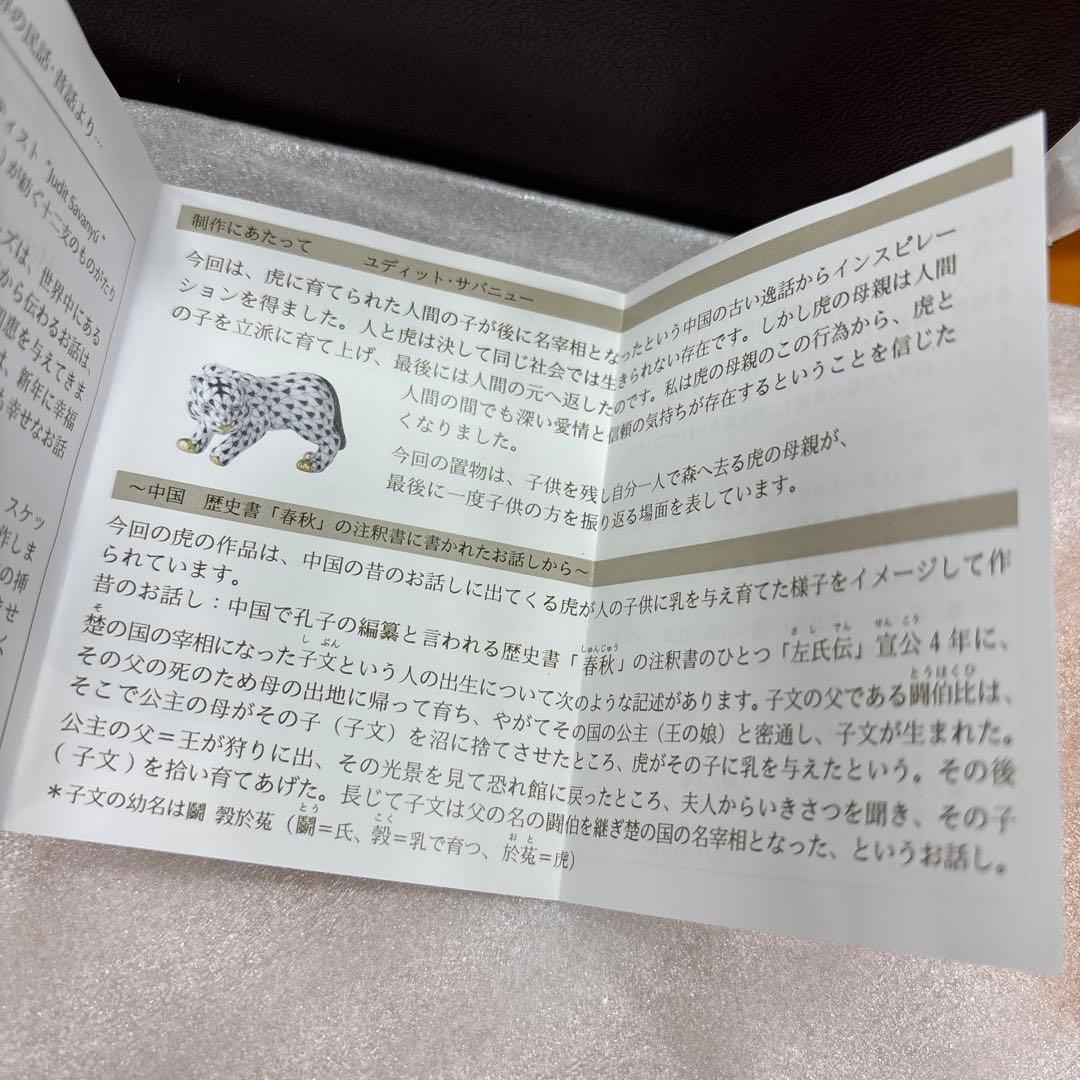 の民話・昔話より…
ティスト "Judit Savanyú"
が紡ぐ十二支のものがたり
ズは、世界中にある
から伝わるお話は、
知恵を与えてきま
は、新年に幸福
も幸せなお話
スケッ
作しま
の挿
幸せ
く
制作にあたって
ユディット・サバニュー
今回は、虎に育てられた人間の子が後に名宰相となったという中国の古い逸話からインスピレー
ションを得ました。人と虎は決して同じ社会では生きられない存在です。しかし虎の母親は人間
の子を立派に育て上げ、最後には人間の元へ返したのです。私は虎の母親のこの行為から、虎と
人間の間でも深い愛情と信頼の気持ちが存在するということを信じた
くなりました。
今回の置物は、子供を残し自分一人で森へ去る虎の母親が、
最後に一度子供の方を振り返る場面を表しています。
～中国 歴史書「春秋」の注釈書に書かれたお話しから～
今回の虎の作品は、中国の昔のお話しに出てくる虎が人の子供に乳を与え育てた様子をイメージして作
られています。
昔のお話し：中国で孔子の編纂と言われる歴史書「春秋」の注釈書のひとつ「左氏伝」宣公4年に、
楚の国の宰相になった子文という人の出生について次のような記述があります。子文の父である闘伯比は、
その父の死のため母の出地に帰って育ち、やがてその国の公主（王の娘）と密通し、子文が生まれた。
そこで公主の母がその子（子文）を沼に捨てさせたところ、虎がその子に乳を与えたという。その後
公主の父＝王が狩りに出、その光景を見て恐れ館に戻ったところ、夫人からいきさつを聞き、その子
（子文）を拾い育てあげた。長じて子文は父の名の闘伯を継ぎ楚の国の名宰相となった、というお話し。
＊子文の幼名は鬭 穀於菟（鬭＝氏、穀＝乳で育つ、於菟＝虎）